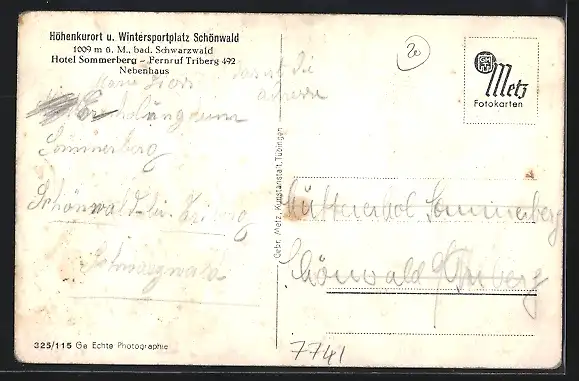 Höhenkurort u. Wintersportplatz Schönwald
1009 m ü. M., bad. Schwarzwald
Hotel Sommerberg - Fernruf Triberg 492
Nebenhaus
das ist die
adresse
Sommerberg
Schönwald bei Triberg
Schwarzwald
20
Metz
Fotokarten
Gebr. Metz, Kunstanstalt, Tübingen
Sommerberg
Schönwald Triberg
325/115 Ga Echte Photographie
7741